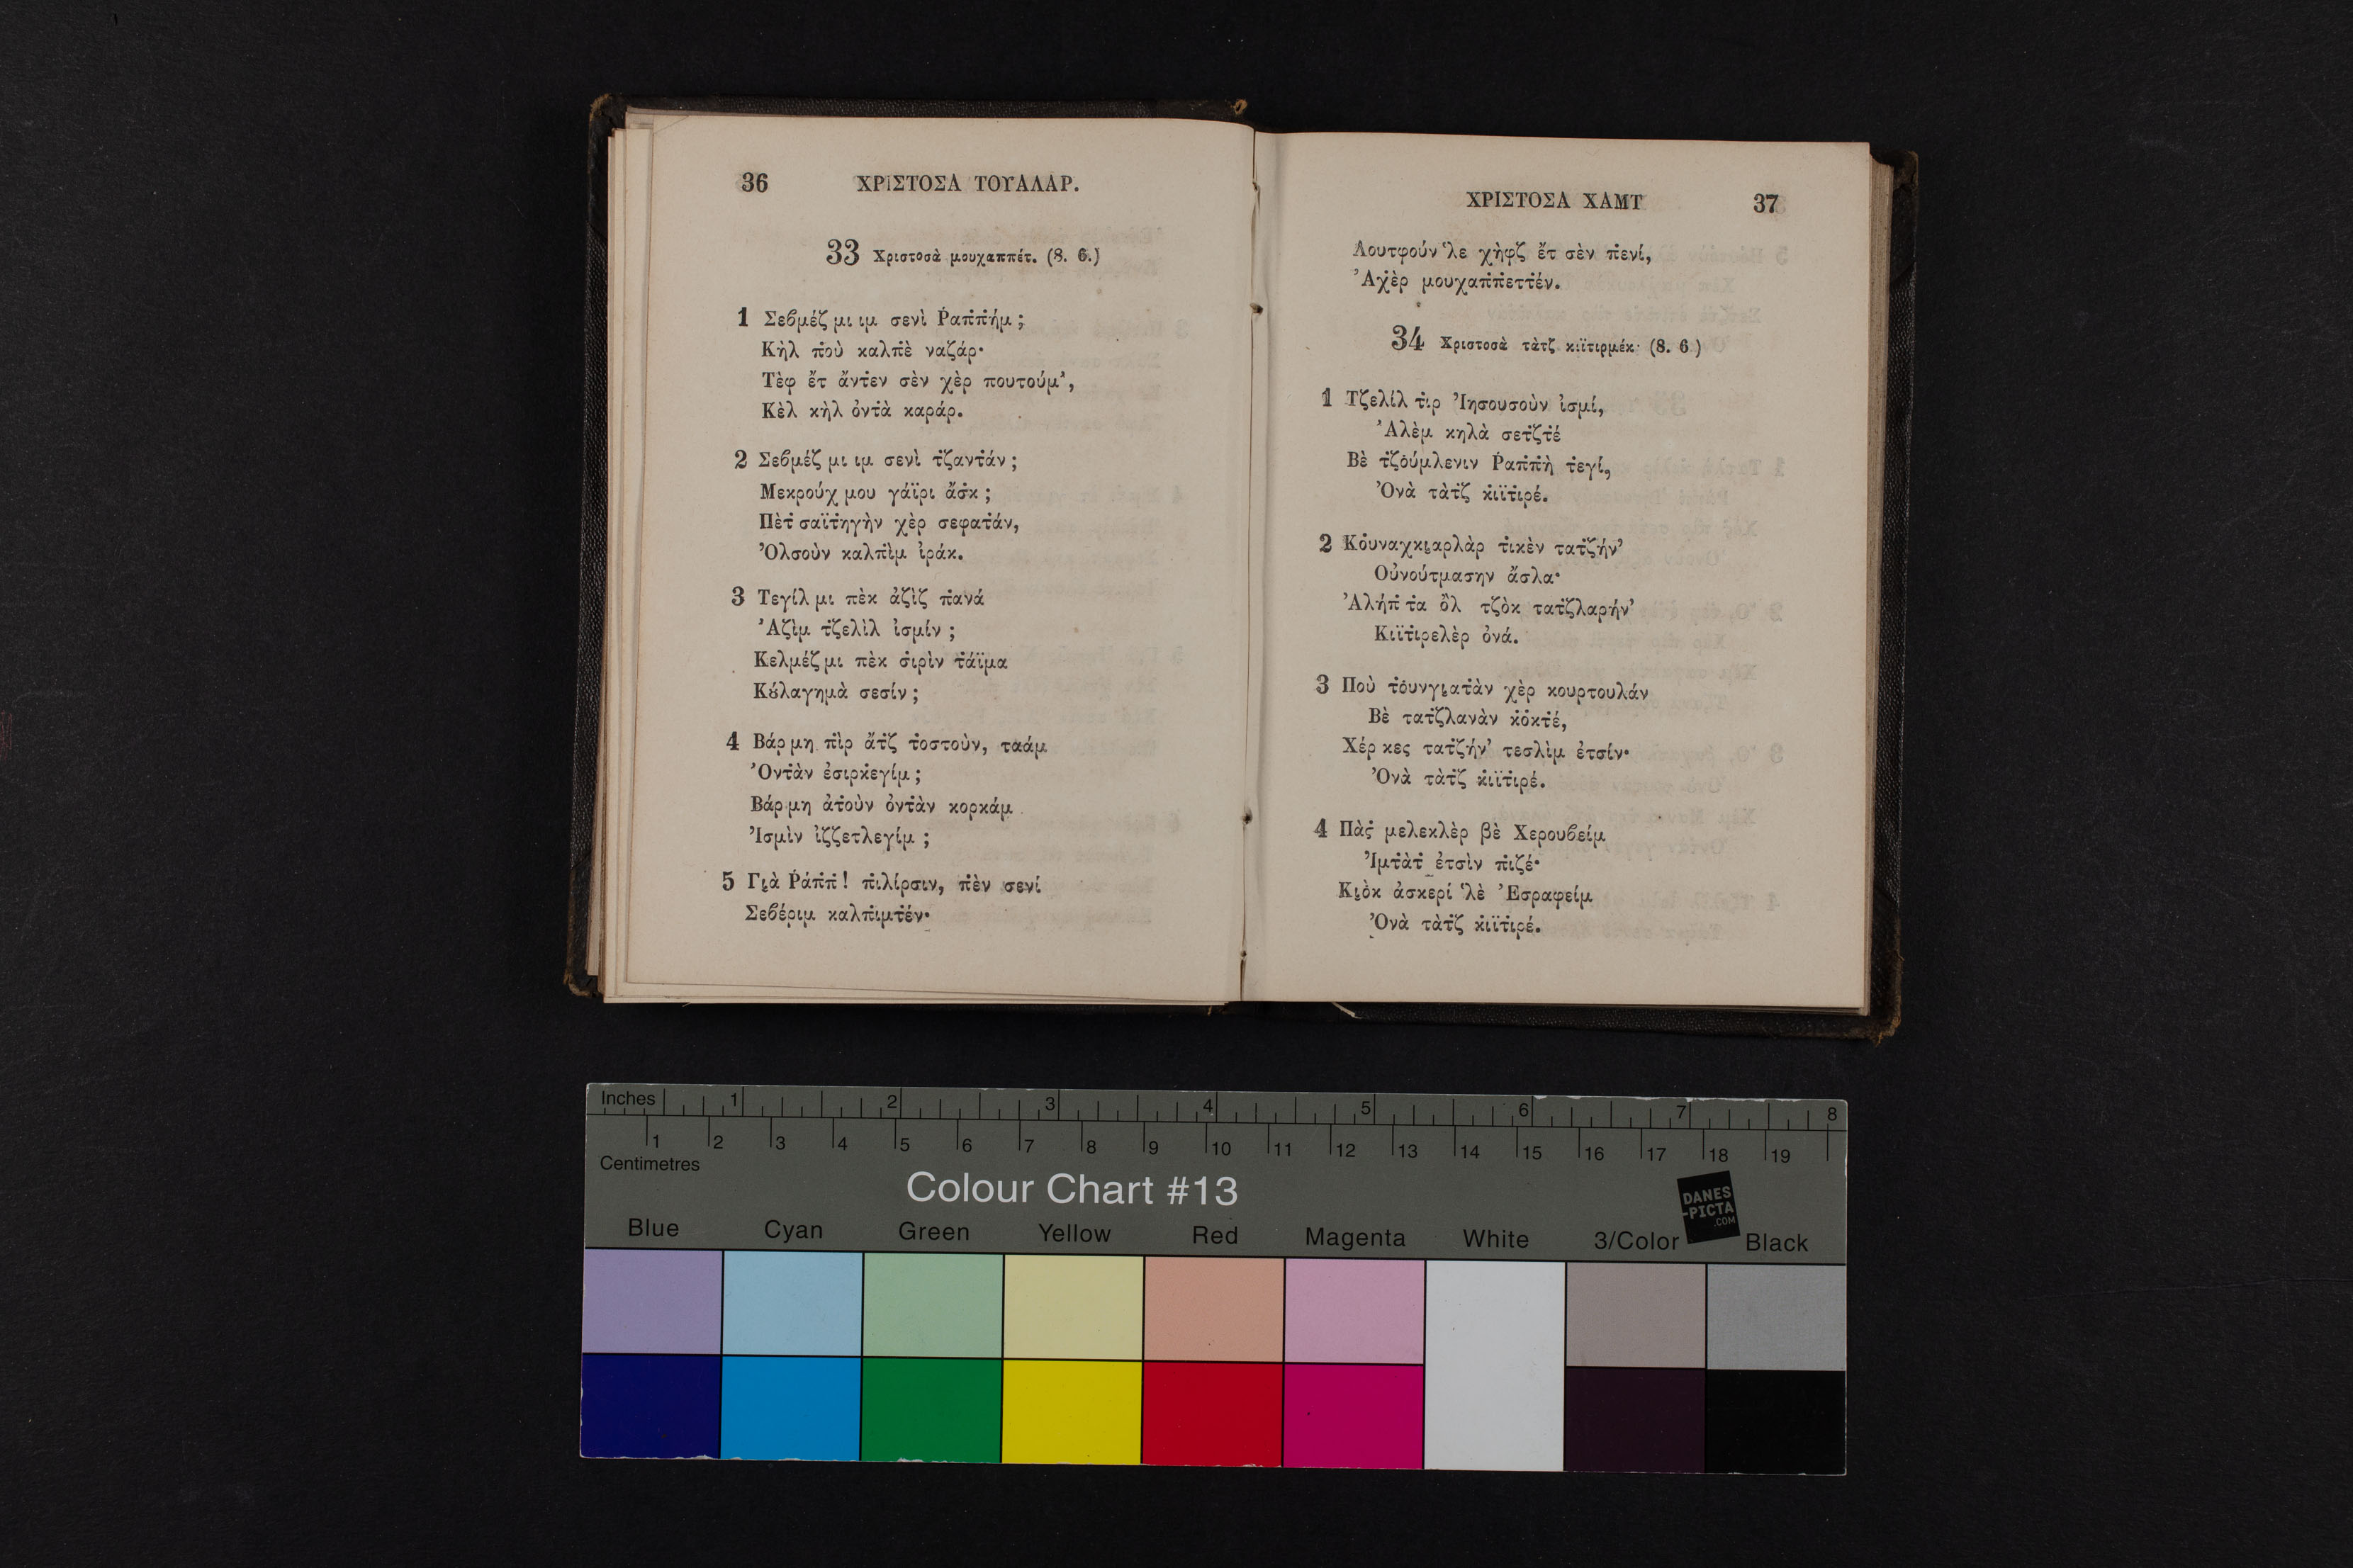 36 ΧΡΙΣΤΟΣΑ ΤΟΥΑΛΑΡ.
33 Χριστοσὰ μουχαππέτ. (8. 6.)
1 Σεβμέζ μι ιμ σενὶ Ῥαπ̇π̇ήμ ;
Κὴλ π̇οὺ καλπ̇ὲ ναζάρ·
Τὲφ ἔτ ἄντ̇εν σὲν χὲρ πουτούμ',
Κὲλ κὴλ ὀντ̇ὰ καράρ.
2 Σεβμέζ μι ιμ σενὶ τ̇ζαντ̇άν ;
Μεκρούχ μου γάϊρι ἄσ̇κ ;
Πὲτ̇ σαϊτ̇ηγὴν χὲρ σεφατ̇άν,
Ὀλσοὺν καλπ̇ὶμ ἰράκ.
3 Τεγίλ μι πὲκ ἀζὶζ π̇ανά
Ἀζὶμ τ̇ζελὶλ ἰσμίν ;
Κελμέζ μι πὲκ σ̇ιρὶν τ̇άϊμα
Κȣ́λαγημὰ σεσίν ;
4 Βάρ μη π̇ὶρ ἄτ̇ζ τ̇οστοὺν, ταάμ
Ὀντ̇ὰν ἐσιρκ̇εγίμ ;
Βάρ μη ἀτ̇οὺν ὀντ̇ὰν κορκάμ
Ἰσμὶν ἰζζετλεγίμ ;
5 Γι̮ὰ Ῥάπ̇π̇! π̇ιλίρσιν, π̇ὲν σενί
Σεβέριμ καλπ̇ιμτ̇έν·
ΧΡΙΣΤΟΣΑ ΧΑΜΤ 37
Λουτφούν 'λε χὴφζ ἔτ σὲν π̇ενί,
Ἀχὲρ μουχαπ̇π̇εττ̇έν.
34 Χριστοσὰ τὰτζ κιϊτιρμέκ· (8. 6)
1 Τζελίλ τ̇ιρ Ἰησουσοὺν ἰσμί,
Ἀλὲμ κηλὰ σετ̇ζτ̇έ
Βὲ τ̇ζο̇ύμλενιν Ῥαπ̇π̇ὴ τ̇εγί,
Ὀνὰ τὰτ̇ζ κ̇ιϊτ̇ιρέ.
2 Κο̇υναχκι̮αρλὰρ τ̇ικὲν τατ̇ζήν'
Οὐνούτμασην ἄσλα·
Ἀλήπ̇ τ̇α ὂλ τζὸκ τατ̇ζλαρήν'
Κιϊτ̇ιρελὲρ ὀνά.
3 Ποὺ τ̇ο̇υνγι̮ατ̇ὰν χὲρ κουρτουλάν
Βὲ τατ̇ζλανὰν κ̇ο̇κτ̇έ,
Χέρ κες τατ̇ζήν' τεσλὶμ ἐτσίν·
Ὀνὰ τὰτ̇ζ κ̇ιϊτ̇ιρέ.
4 Πὰσ̇ μελεκλὲρ βὲ Χερουβείμ
Ἰμτ̇ὰτ̇ ἐτσὶν π̇ιζέ·
Κι̮ὸκ ἀσκερί 'λὲ Ἐσραφείμ
Ὀνὰ τὰτ̇ζ κ̇ιϊτ̇ιρέ.
Inches 1 2 3 4 5 6 7 8
1 2 3 4 5 6 7 8 9 10 11 12 13 14 15 16 17 18 19
Centimetres
Colour Chart #13
DANES
-PICTA
.COM
Blue Cyan Green Yellow Red Magenta White 3/Color Black